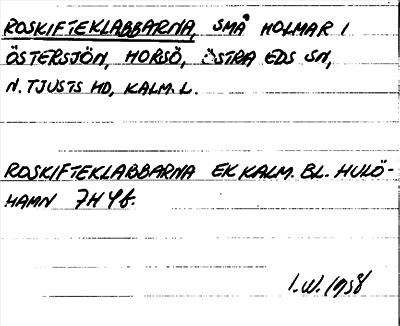 ROSKIFTEKLABBARNA, SMÅ HOLMAR I
ÖSTERSJÖN, HORSÖ, ÖSTRA EDS SN,
N. TJUSTS HD, KALM. L.
ROSKIFTEKLABBARNA EK KALM. BL. HULÖ-
HAMN 7H 4f.
I.W. 1958